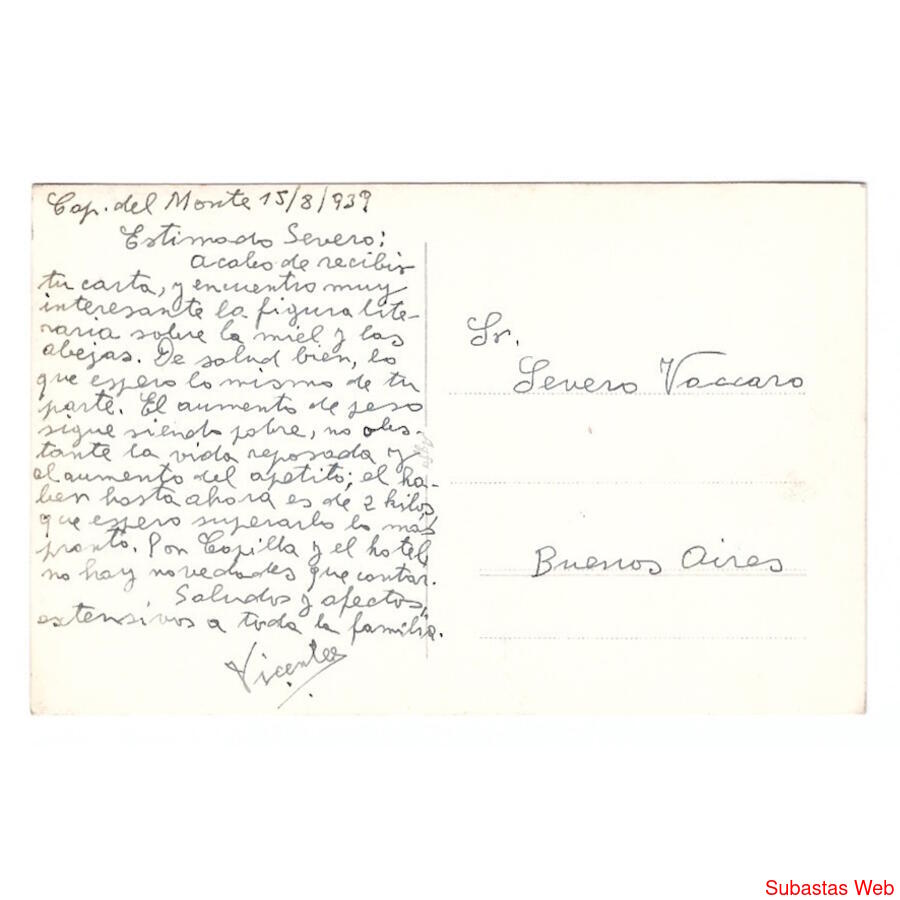 Cap. del Monte 15/8/939
Estimado Severo:
Acabo de recibir
tu carta, y encuentro muy
interesante la figura lite-
raria sobre la miel y las
abejas. De salud bien, lo
que espero lo mismo de tu
parte. El aumento de peso
sigue siendo pobre, no obs-
tante la vida reposada y
el aumento del apetito; el ha-
ber hasta ahora es de 2 kilos,
que espero superarlo lo más
pronto. Por Capilla y el hotel
no hay novedades que contar.
Saludos y afectos,
extensivos a toda la familia.
Vicente
Sr.
Severo Vaccaro
Buenos Aires
Agfa
Subastas Web